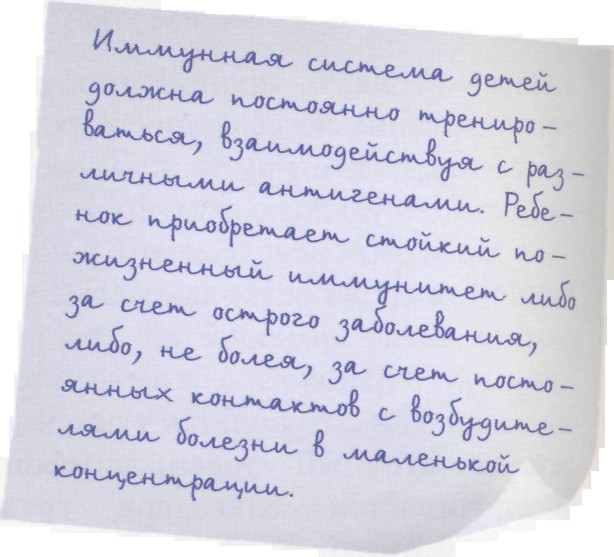 Иммунная система детей
должна постоянно трениро-
ваться, взаимодействуя с раз-
личными антигенами. Ребе-
нок приобретает стойкий по-
жизненный иммунитет либо
за счет острого заболевания,
либо, не болея, за счет посто-
янных контактов с возбудите-
лями болезни в маленькой
концентрации.